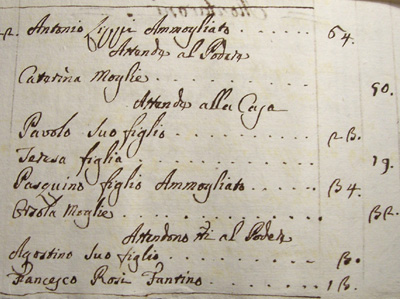 2. Antonio Lippi Ammogliato 64.
Attende al Podere
Caterina Moglie 50.
Attende alla Casa
Pavolo suo figlio 23.
Teresa figlia 19.
Pasquino figlio Ammogliato 34.
Orsola Moglie 32.
Attendono tti al Podere
Agostino suo figlio
Francesco Rosi Fantino 13.